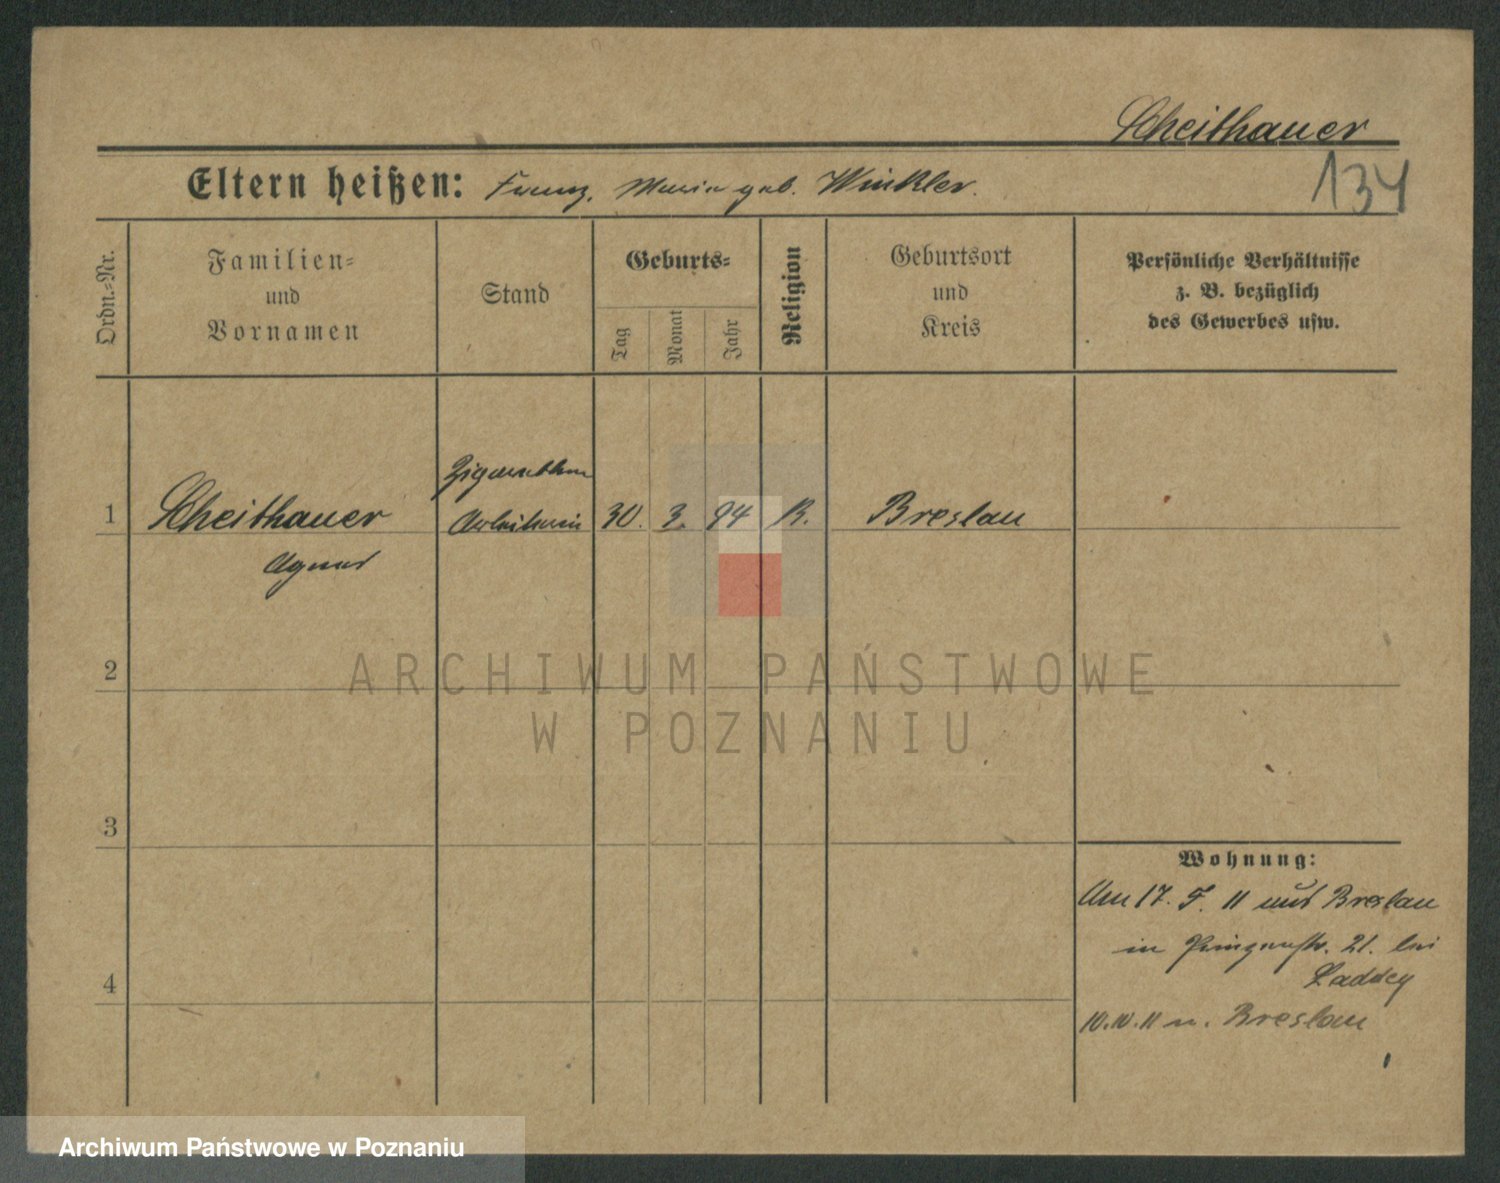 Scheithauer
134
Eltern heißen: Franz, Maria geb. Winkler.
Ordn.-Nr.
Familien-
und
Vornamen
Stand
Geburts-
Tag
Monat
Jahr
Religion
Geburtsort
und
Kreis
Persönliche Verhältnisse
z. B. bezüglich
des Gewerbes usw.
1
Scheithauer
Agnes
Zigaretten
Arbeiterin
30.
3.
94
K.
Breslau
2
3
4
Wohnung:
Am 17. 7. 11 aus Breslau
in Prinzenstr. 21. bei
Laddey
10.10.11 n. Breslau
ARCHIWUM PAŃSTWOWE
W POZNANIU
Archiwum Państwowe w Poznaniu